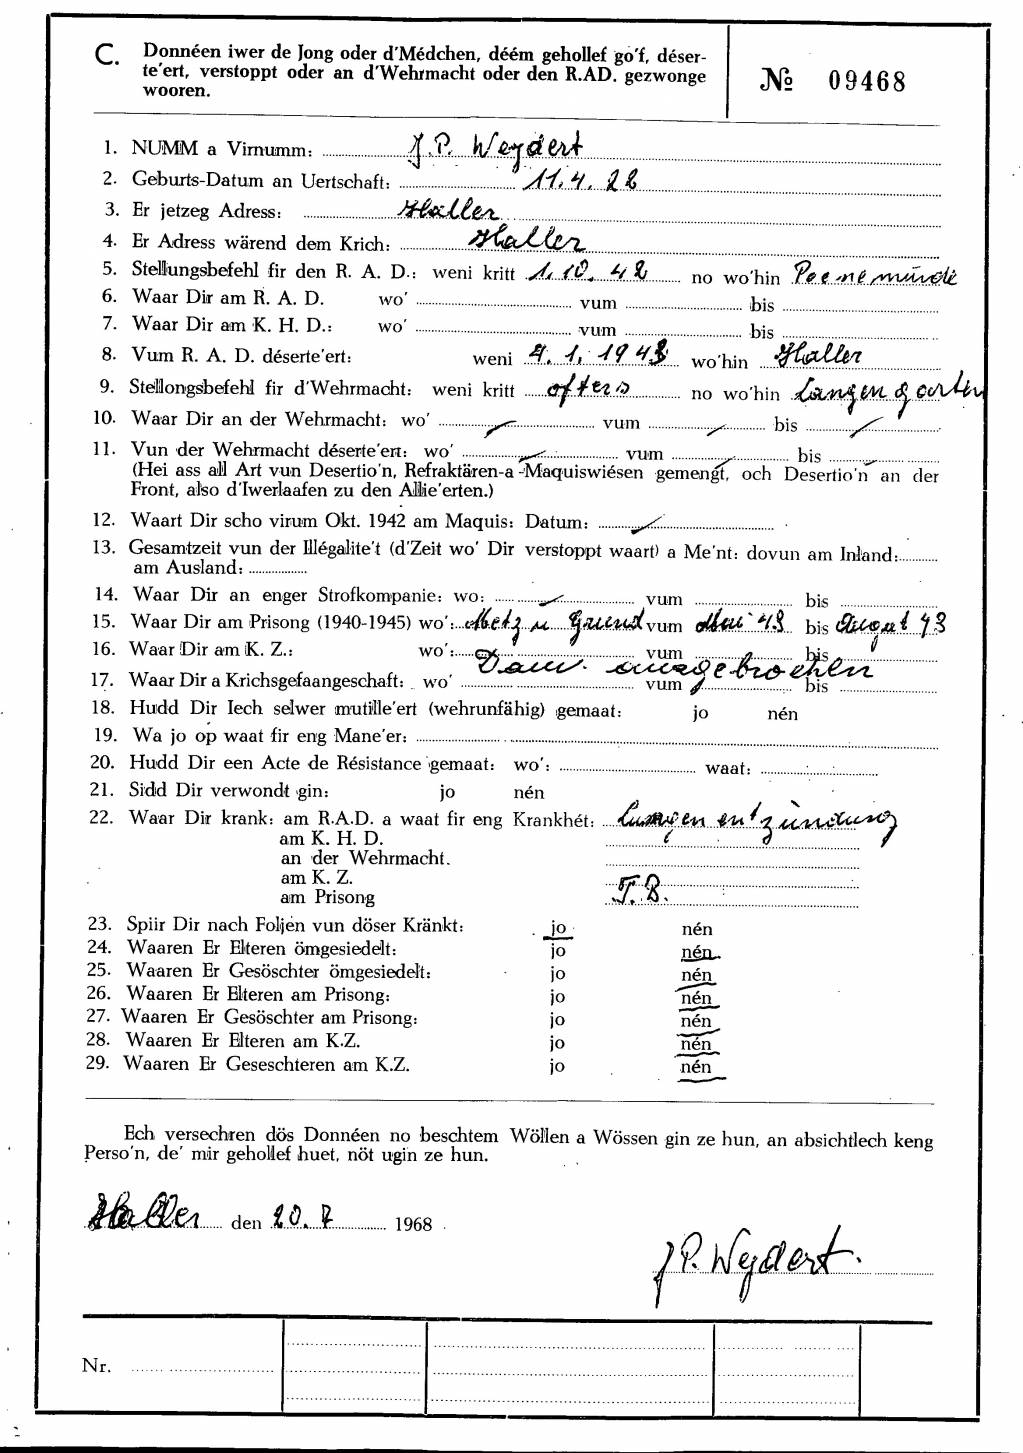 C. Donnéen iwer de Jong oder d'Médchen, déém gehollef go'f, déser-
te'ert, verstoppt oder an d'Wehrmacht oder den R.AD. gezwonge
wooren.
№ 09468
1. NUMM a Virnumm: J.P. Weydert
2. Geburts-Datum an Uertschaft: 11.4.22
3. Er jetzeg Adress: Haller
4. Er Adress wärend dem Krich: Haller
5. Stellungsbefehl fir den R. A. D.: weni kritt 1.10.42 no wo'hin Peenemünde
6. Waar Dir am R. A. D. wo' vum bis
7. Waar Dir am K. H. D.: wo' vum bis
8. Vum R. A. D. déserte'ert: weni 4.1.1943 wo'hin Haller
9. Stellongsbefehl fir d'Wehrmacht: weni kritt ofters no wo'hin Langengarten
10. Waar Dir an der Wehrmacht: wo' / vum / bis /
11. Vun der Wehrmacht déserte'ert: wo' / vum / bis /
(Hei ass all Art vun Desertio'n, Refraktären-a -Maquiswiésen gemengt, och Desertio'n an der
Front, also d'Iwerlaafen zu den Allie'erten.)
12. Waart Dir scho virum Okt. 1942 am Maquis: Datum: /
13. Gesamtzeit vun der Illégalite't (d'Zeit wo' Dir verstoppt waart) a Me'nt: dovun am Inland:
am Ausland:
14. Waar Dir an enger Strofkompanie: wo: / vum bis
15. Waar Dir am Prisong (1940-1945) wo': Metz u Grund vum Mai 43 bis August 43
16. Waar Dir am K. Z.: wo': vum bis
Dann ausgebrochen
17. Waar Dir a Krichsgefaangeschaft: wo' vum bis
18. Hudd Dir Iech selwer mutille'ert (wehrunfähig) gemaat: jo nén
19. Wa jo op waat fir eng Mane'er:
20. Hudd Dir een Acte de Résistance gemaat: wo': waat:
21. Sidd Dir verwondt gin: jo nén
22. Waar Dir krank: am R.A.D. a waat fir eng Krankhét: Lungenentzündung
am K. H. D.
an der Wehrmacht.
am K. Z.
am Prisong T.B.
23. Spiir Dir nach Foljen vun döser Kränkt: jo nén
24. Waaren Er Elteren ömgesiedelt: jo nén
25. Waaren Er Gesöschter ömgesiedelt: jo nén
26. Waaren Er Elteren am Prisong: jo nén
27. Waaren Er Gesöschter am Prisong: jo nén
28. Waaren Er Elteren am K.Z. jo nén
29. Waaren Er Geseschteren am K.Z. jo nén
Ech versechren dös Donnéen no beschtem Wöllen a Wössen gin ze hun, an absichtlech keng
Perso'n, de' mir gehollef huet, nöt ugin ze hun.
Haller den 20.7 1968
J.P. Weydert.
Nr.